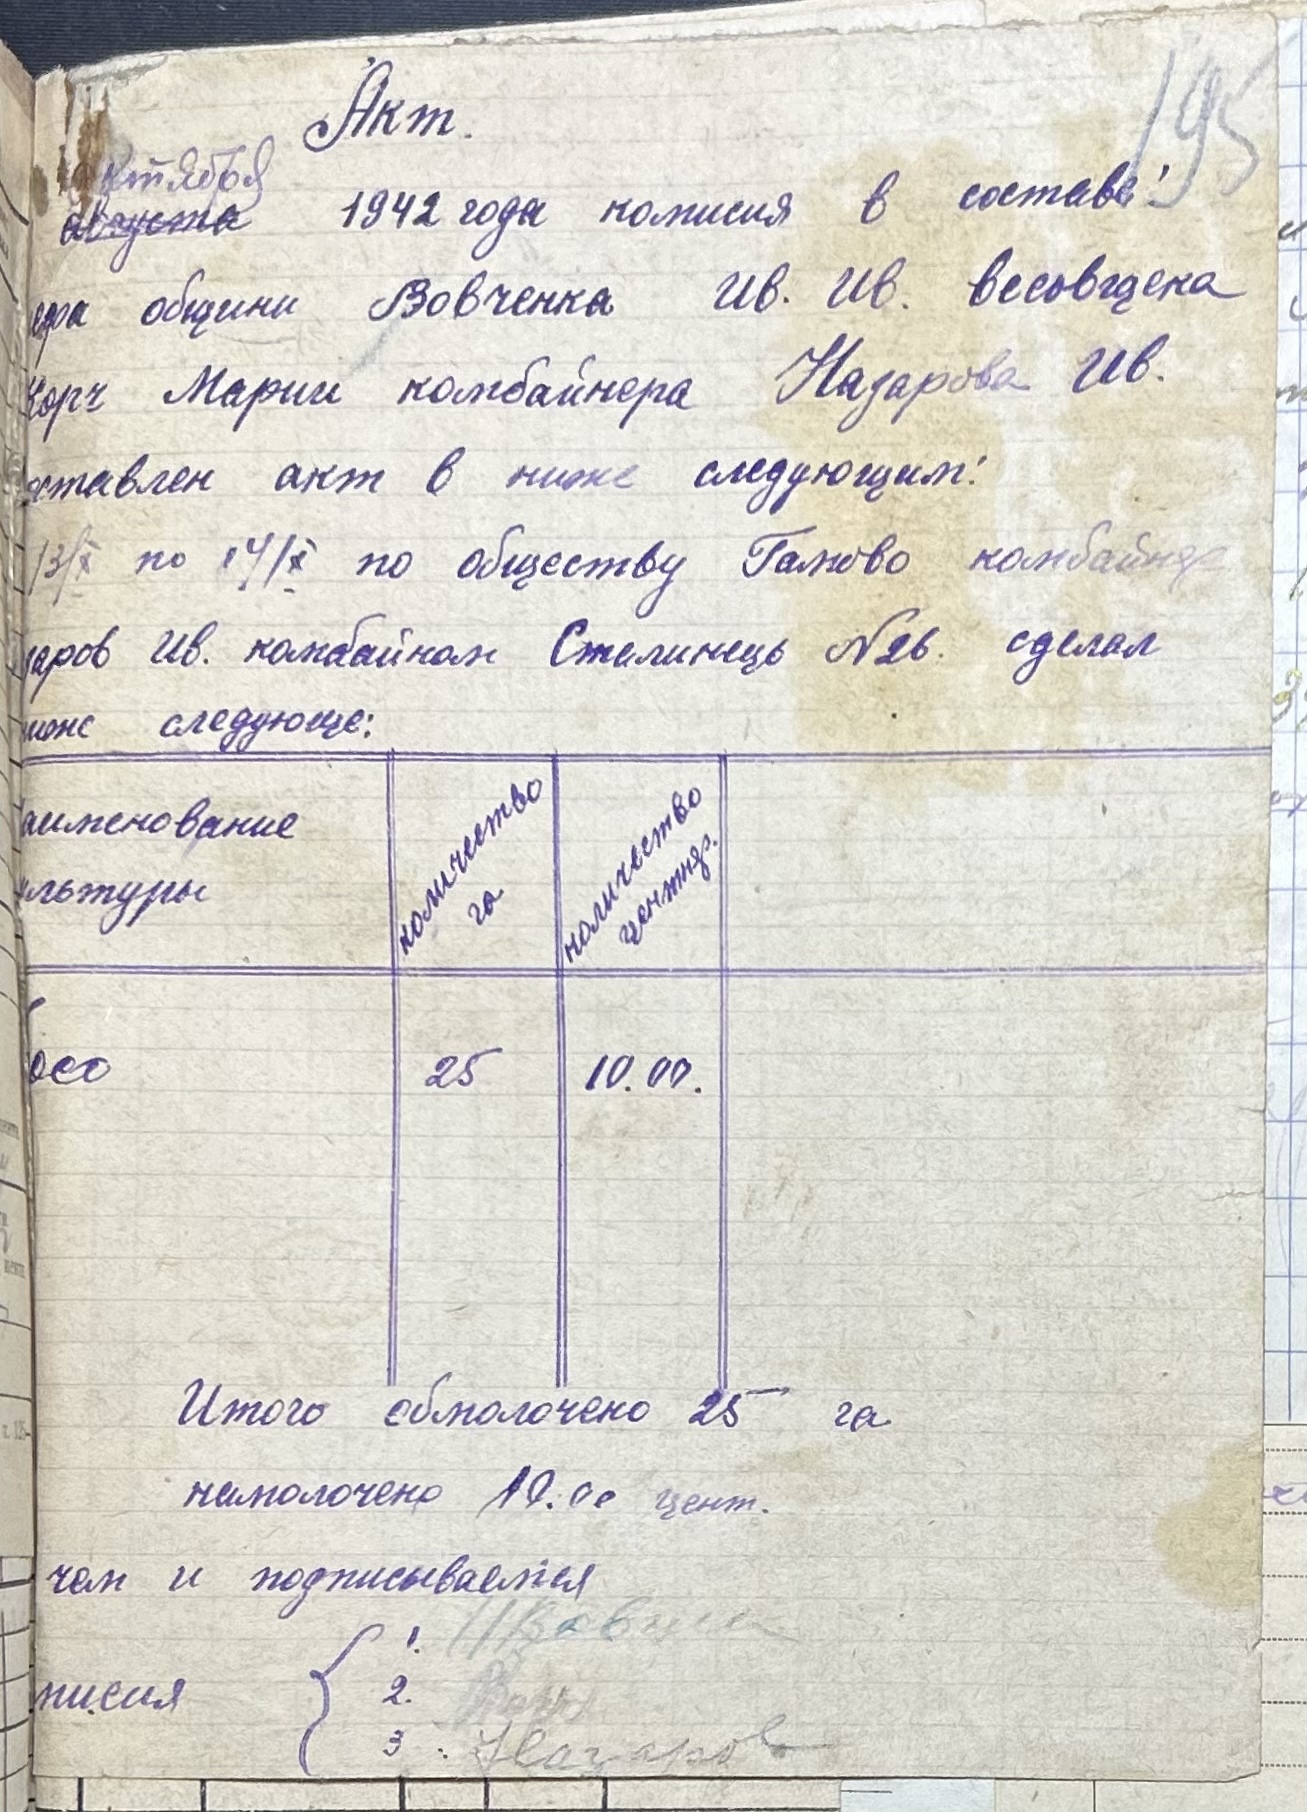 195
Акт.
ктября
августа 1942 года комисия в составе:
общини Вовченка Ив. Ив. весовщека
Корч Марии комбайнера Назарова Ив.
ставлен акт в ниже следующим:
13/X по 17/X по обществу Галково комбайнер
заров Ив. комбайном Сталинець №26. сделал
ниже следующе:
аименование
ультуры
количество
га
количество
центнр.
осо 25 10.00.
Итого обмолочено 25 га
намолочено 10.00 цент.
чем и подписываемся
мисия
1.
2.
3. Назаров